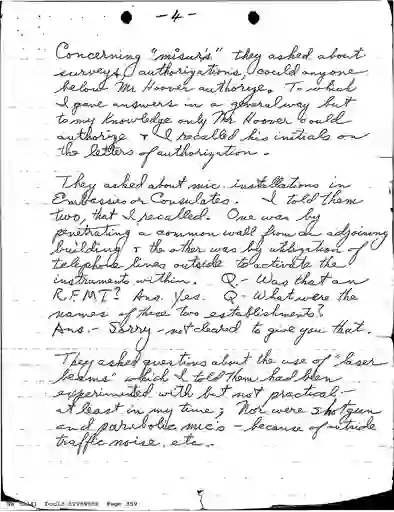 - 4 -
Concerning "misur's" they asked about
surveys, authorizations, could anyone
below Mr Hoover authorize. To which
I gave answers in a general way but
to my knowledge only Mr. Hoover could
authorize & I recalled his initials on
the letters of authorization.
They asked about mic. installations in
Embassies or Consulates. I told them
two, that I recalled. One was by
penetrating a common wall from an adjoining
building & the other was by utilization of
telephone lines outside to activate the
instruments within. Q.- Was that an
R.F.M.T? Ans. Yes. Q- What were the
names of these two establishments?
Ans.- Sorry - not cleared to give you that.
They asked questions about the use of "laser
beams" which I told them had been
experimented with but not practical -
at least in my time; Nor were shotgun
and parabolic mic's - because of outside
traffic noise, etc.
Page 359